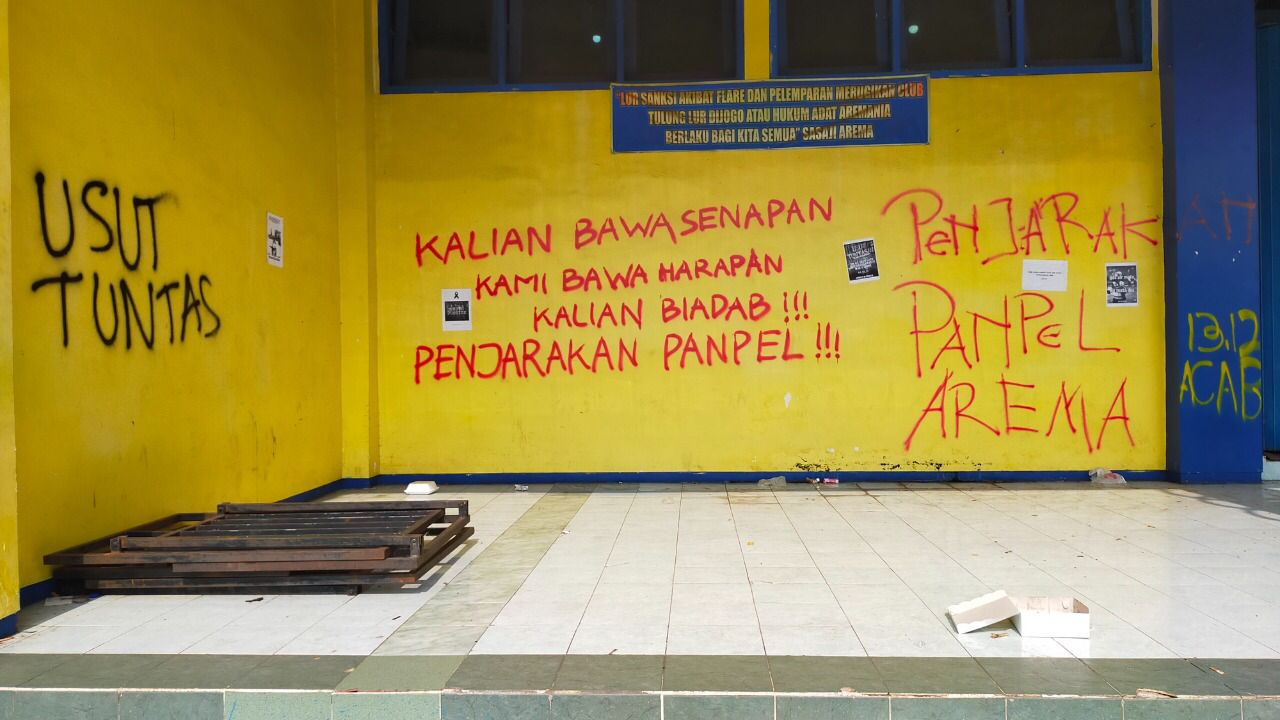 "LUR SANKSI AKIBAT FLARE DAN PELEMPARAN MERUGIKAN CLUB
TULUNG LUR DIJOGO ATAU HUKUM ADAT AREMANIA
BERLAKU BAGI KITA SEMUA" SASAJI AREMA
USUT
TUNTAS
KALIAN BAWA SENAPAN
KAMI BAWA HARAPAN
KALIAN BIADAB !!!
PENJARAKAN PANPEL !!!
PENJARAKAN
PANPEL
AREMA
13.12
ACAB